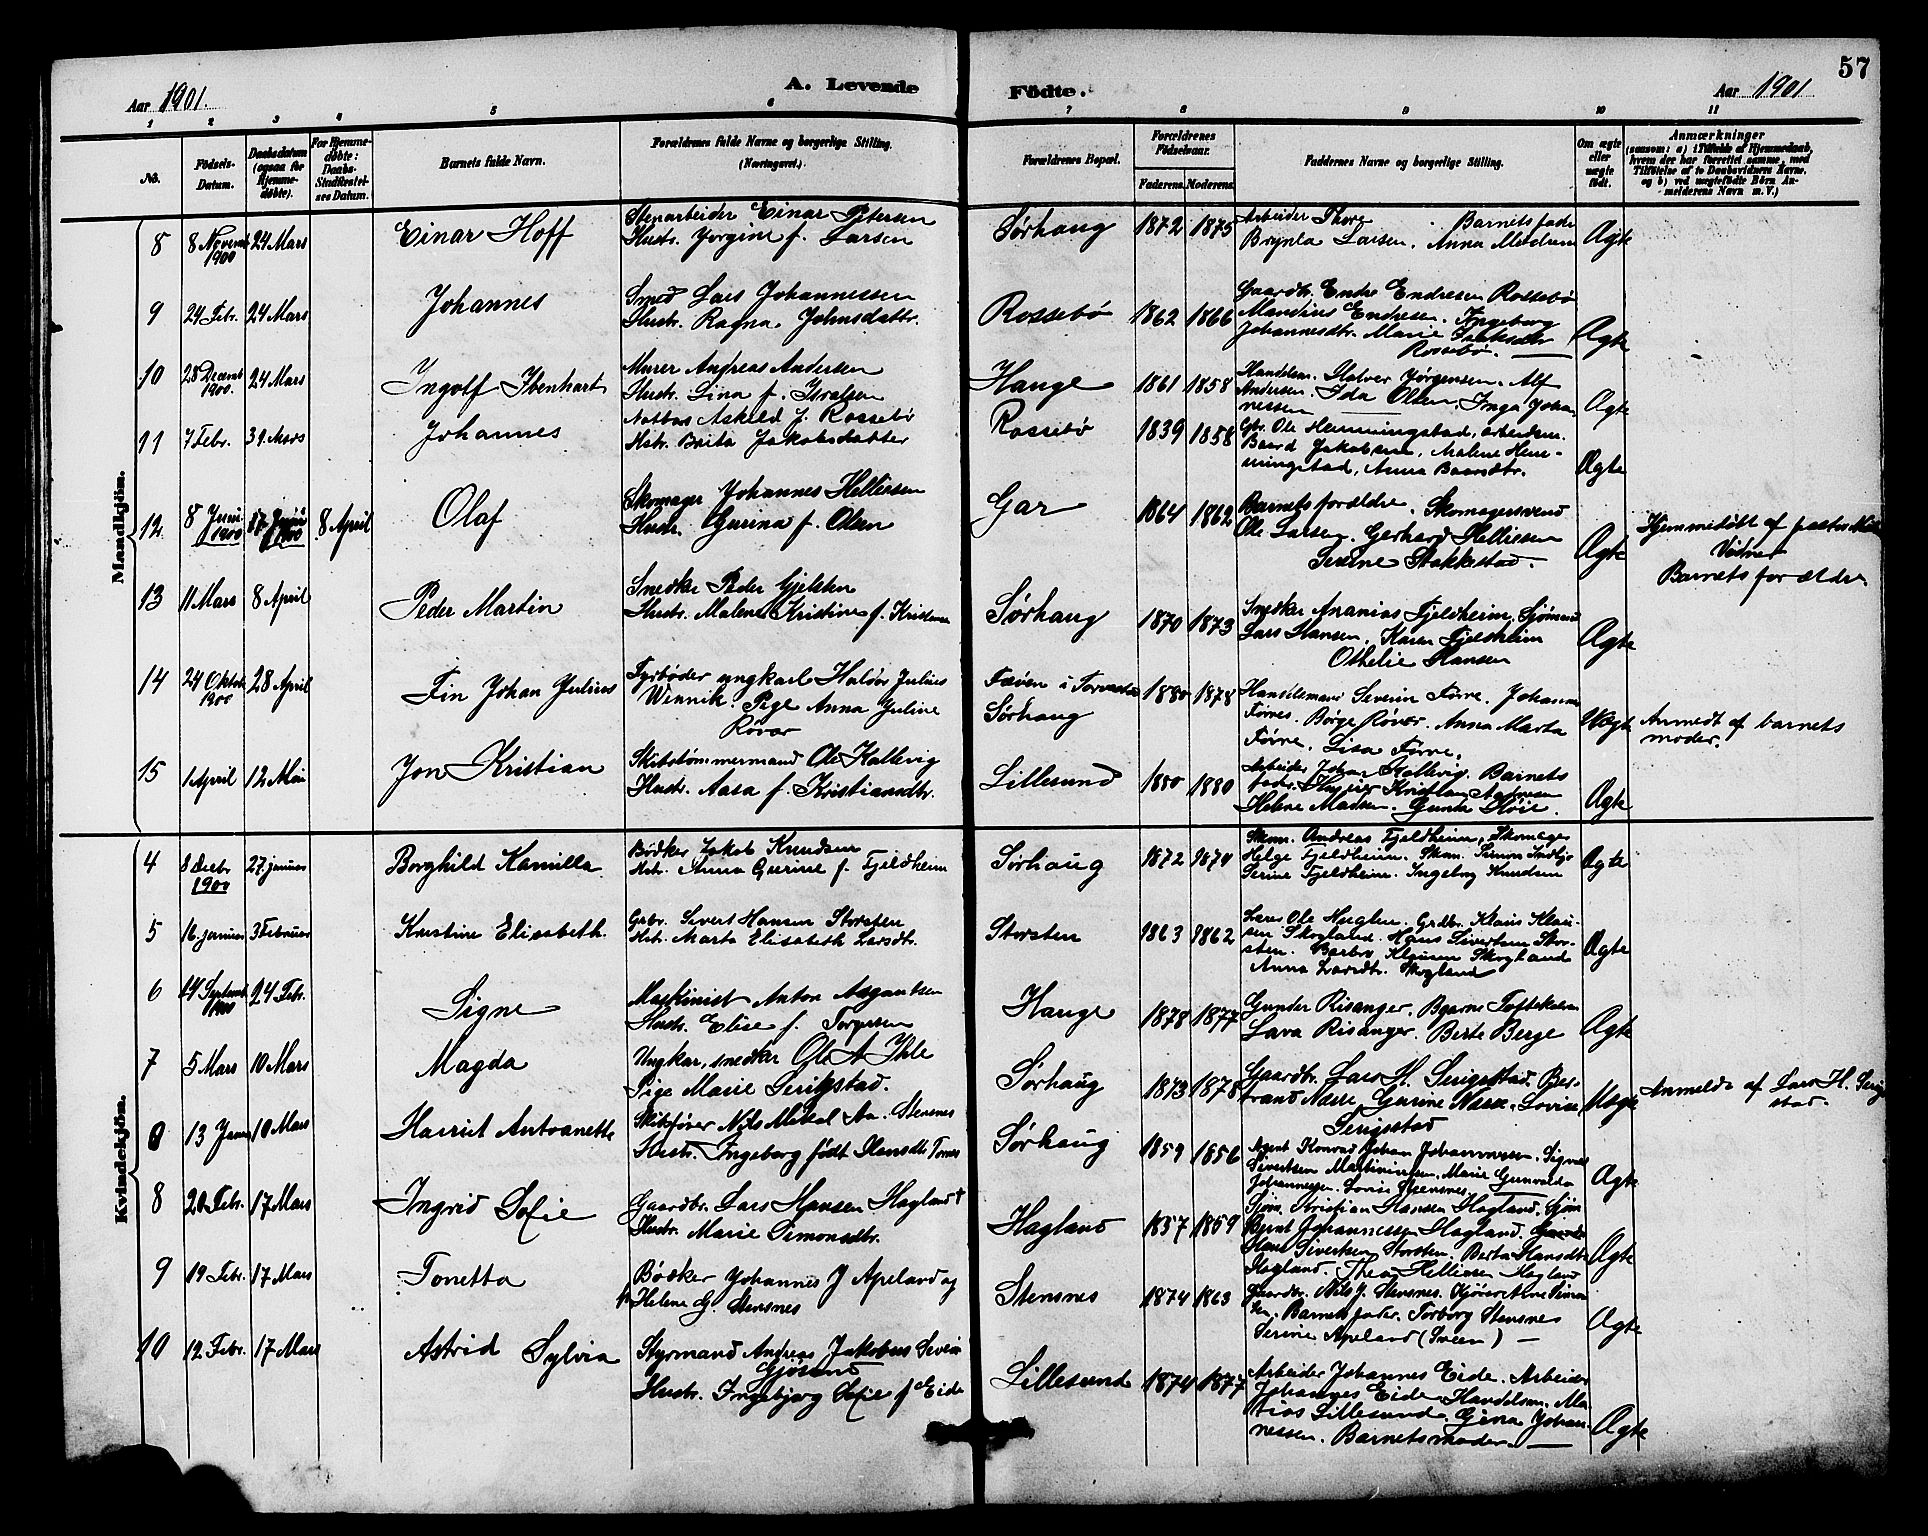 57
Aar 1901. A. Levende Födte. Aar 1901
1 2 3 4 5 6 7 8 9 10 11
No.
Födsels-
Datum.
Daabsdatum
(ogsaa for
Hjemme-
döbte).
For Hjemme-
döbte:
Daabs-
Stadfæstel-
ses Datum.
Barnets fulde Navn.
Forældrenes fulde Navne og borgerlige Stilling.
(Næringsvei.)
Forældrenes Bopæl.
Forældrenes
Födselsaar.
Faderens. Moderens.
Faddernes Navne og borgerlige Stilling.
Om ægte
eller
uægte
födt.
Anmærkninger
(saasom: a) i Tilfælde af Hjemmedaab,
hvem der har forrettet samme, med
Tilföielse af to Daabsvidners Navne,
og b) ved uægtefödte Börn An-
melderens Navn m. V.)
Mandkjön.
8 8 Novemb 1900 24 Mars Einar Hoff
Stenarbeider Einar Petersen
Hustr. Jorgine f. Larsen
Sørhaug 1872 1875
Arbeider Thore Barnets fader
Larsen. Anna
Ægte
9 24 Febr. 24 Mars Johannes
Smed Lars Johannessen
Hustr. Ragna Johnsdattr.
Rossebø 1862 1866
Gaardbr. Endre Endresen Rossebø
Mandius Endresen. Ingeborg
Johannesdtr. Marie
Rossebø.
Ægte
10 28 Decemb 1900. 24 Mars Ingolf Ibenhart
Murer Andreas Andersen
Hustr. Lina f. Isralsen
Hauge 1861 1858
Handelsm. Halver Jørgensen. Alf
Andersen. Ida Olsen. Inga Johan
nessen
Ægte
11 7 Febr. 31 Mars Johannes
Askild J. Rossebø
Hstr. Brita Jakobsdatter
Rossebø 1839 1858
Gbr. Ole Hemmingstad, arbeidsm.
Baard Jakobsen, Malene Hem-
mingstad, Anna Baardsdtr.
Ægte
12 8 Juni 1900 17 Juni 1900 8 April Olaf
Skomager Johannes Helliesen
Hustr. Gurina f. Olsen
Gar 1864 1862
Barnets forældre. Skomagersvend
Ole Larsen. Gerhard Helliesen
Serine Stakkestad.
Ægte
Hjemmedøbt af pastor
Vidner
Barnets forældre
13 11 Mars 8 April Peder Martin
Snedker Peder Gjelsten
Hustr. Malene Kristine f. Kristensen
Sørhaug 1870 1873
Snedker Ananias Fjeldheim, Sjømand
Lars Hansen. Karen Fjeldheim
Othelie Hansen
Ægte
14 24 Oktob 1900 28 April Fin Johan Julius
Fyrbøder ungkarl Halvor Julius
Winnik. Pige Anna Juline
Røvær
Fæøen i Torvestad
Sørhaug
1880 1878
Handelsmand Severin Førre. Johannes
Børge Røvær. Anna Marta
Førre. Lisa Førre.
Uægte
Anmedt af barnets
moder.
15 1 April 12 Mai Jon Kristian
Skibstømmermand Ole Kallevig
Hustr. Aasa f. Kristiansdtr.
Lillesund 1850 1880
Arbeider Johan Kallevig. Barnets
fader. Kristian
Helene Madsen. Gunda Høie.
Ægte
Kvindekjön.
4 8 Decbr 1900 27 januar Borghild Kamilla
Bødker Jakob Knudsen
Hstr. Anna Gurine f. Fjeldheim
Sørhaug 1872 1874
Skom. Andreas Fjeldheim, Skomager
Helge Fjeldheim. Skom. Simon
Serine Fjeldheim. Ingeborg Knudsen
Ægte
5 16 januar 3 Februar Kristine Elisabeth.
Grbr. Sivert Hansen Storsten
Hstr. Marta Elisabeth Larsdt.
Storsten 1863 1862
Lars Ole Huglen. Grdbr. Klaus Klau-
sen Skogland. Hans Sivertsen Stor-
sten. Barbro Klausen Skogland
Anna Larsdtr. Skogland
Ægte
6 14 Septemb 1900 24 Febr. Signe
Maskinist Anton Asgautsen
Hustr. Elise f. Torgersen
Hauge 1878 1877
Gunder Risanger. Bjarne
Lava Risanger. Berte Berge
Ægte
7 5 Mars 10 Mars Magda
Ungkar, snedker Ole A Ihle
Pige Marie Serigstad.
Sørhaug 1873 1878
Gaardbr. Lars H. Serigstad. Ber-
trand Næsse. Gurine Næsse. Lovise
Serigstad
Uægte
Anmeldt af Lars H. Serig
stad.
8 13 Janu 10 Mars Harriet Antoanette
Skibsfører Nils Mikal Aa. Stensnes
Hustr. Ingeborg født Hansdtr
Sørhaug 1859 1856
Agent Konrad Johan Johannessen. Signe
Sivertsen Martinussen. Marie
Johannessen. Lovise Stensnes.
Ægte
8 20 Febr. 17 Mars Ingrid Sofie
Gaardbr. Lars Hansen Hagland
Hustr. Marie Simonsdtr.
Hagland 1857 1859
Sjøm. Kristian Hansen Hagland. Sjøm
Bernt Johannessen Hagland.
Hans Sivertsen Storsten. Berta Hansdtr
Hagland. Thea Helliesen Hagland
Ægte
9 19 Febr. 17 Mars Tonetta
Bødker Johannes J Apeland og
Helene G. Stensnes
Stensnes 1874 1863
Gaardbr. Nils J. Stensnes. Arne Simon
sen. Barnets fader. Torborg Stensnes
Serine Apeland (Sveen)
Ægte
10 12 Febr. 17 Mars Astrid Sylvia
Styrmand Andreas Jakobus Severin
Gjøsund
Hustr. Ingebjørg Sofie f Eide
Lillesund 1874 1877
Arbeider Johannes Eide. Arbeider
Johannes Eide Handelsm. Ma
tias Lillesund. Gina Johan-
nessen. Barnets moder.
Ægte